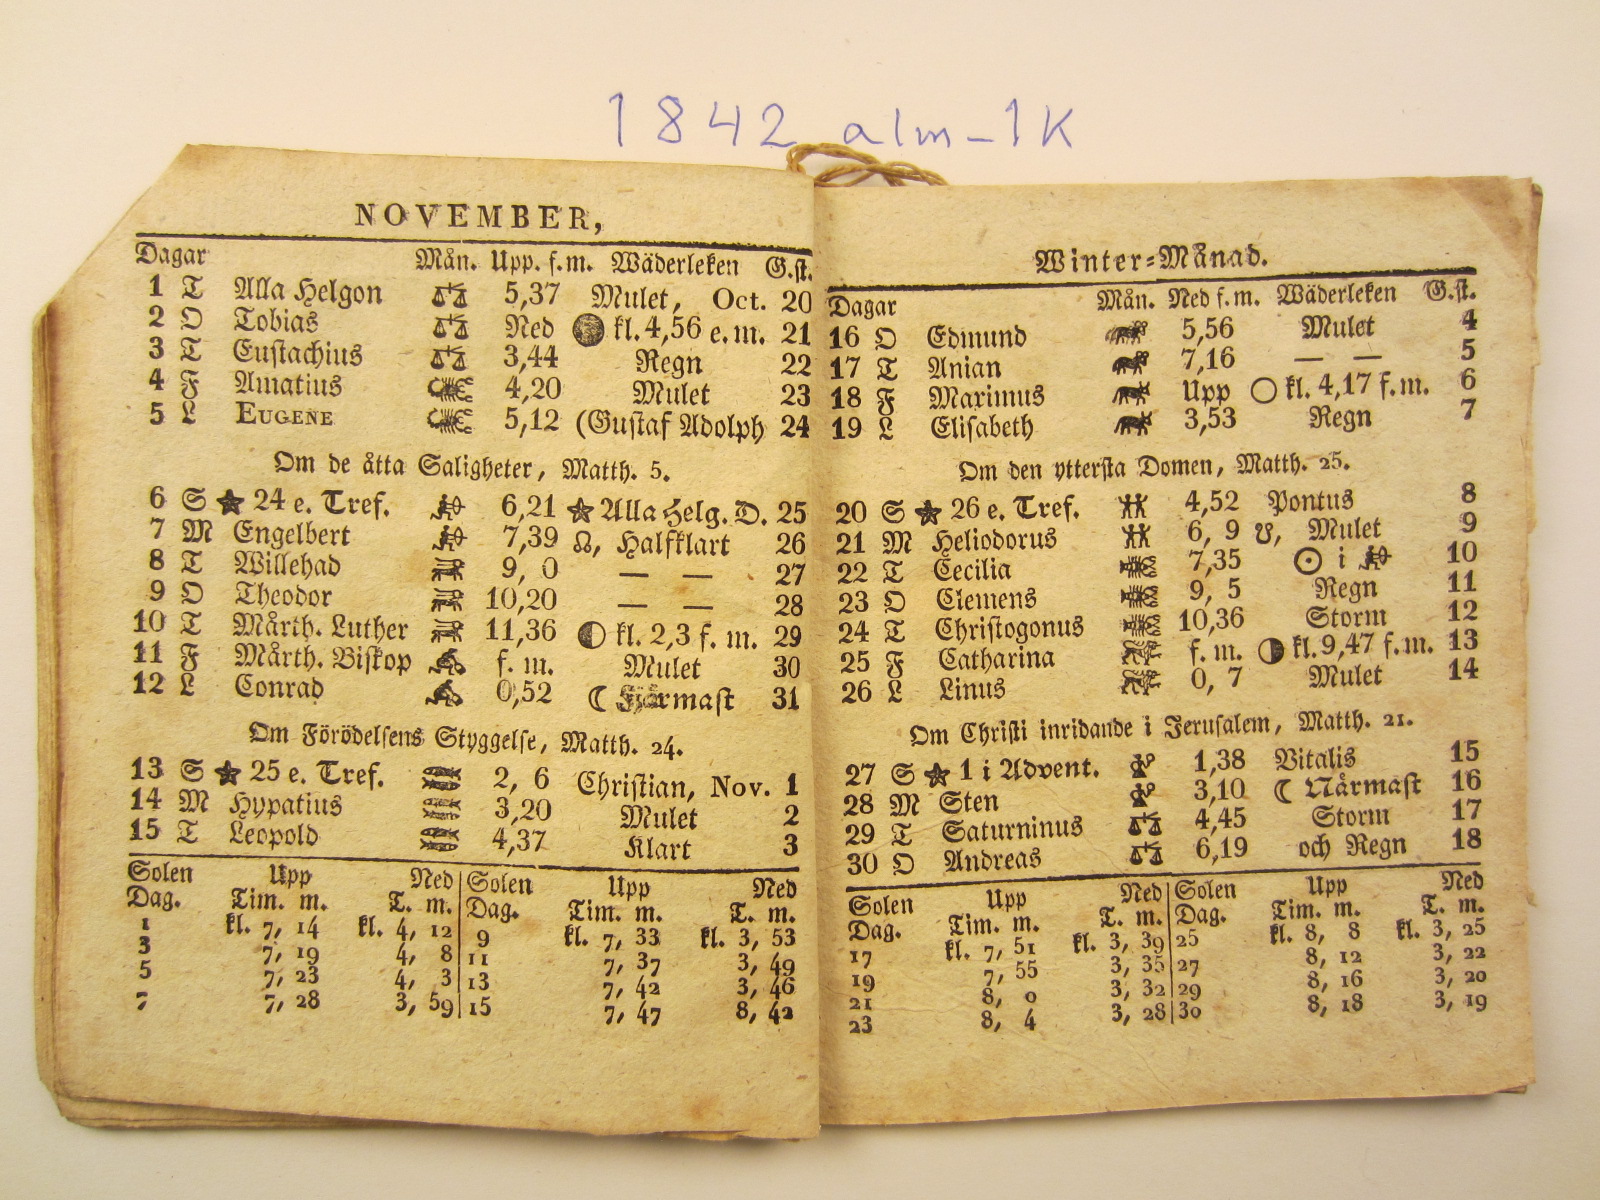 1842 alm-1K
NOVEMBER,
Dagar Mån. Upp. f.m. Wäderleken G.st.
1 T Alla Helgon 5,37 Mulet, Oct. 20
2 O Tobias Ned kl. 4,56 e.m. 21
3 T Eustachius 3,44 Regn 22
4 F Amatius 4,20 Mulet 23
5 L EUGENE 5,12 (Gustaf Adolph 24
Om de åtta Saligheter, Matth. 5.
6 S ★ 24 e. Tref. 6,21 ★ Alla Helg. D. 25
7 M Engelbert 7,39 ☊, Halfklart 26
8 T Willehad 9, 0 — — 27
9 O Theodor 10,20 — — 28
10 T Mårth. Luther 11,36 ◐ kl. 2,3 f. m. 29
11 F Mårth. Biskop f. m. Mulet 30
12 L Conrad 0,52 ☾ Fjärmast 31
Om Förödelsens Styggelse, Matth. 24.
13 S ★ 25 e. Tref. 2, 6 Christian, Nov. 1
14 M Hypatius 3,20 Mulet 2
15 T Leopold 4,37 Klart 3
Solen Upp Ned Solen Upp Ned
Dag. Tim. m. T. m. Dag. Tim. m. T. m.
1 kl. 7, 14 kl. 4, 12 9 kl. 7, 33 kl. 3, 53
3 7, 19 4, 8 11 7, 37 3, 49
5 7, 23 4, 3 13 7, 42 3, 46
7 7, 28 3, 59 15 7, 47 8, 42
Winter-Månad.
Dagar Mån. Ned f.m. Wäderleken G.st.
16 O Edmund 5,56 Mulet 4
17 T Anian 7,16 — — 5
18 F Maximus Upp ○ kl. 4,17 f.m. 6
19 L Elisabeth 3,53 Regn 7
Om den yttersta Domen, Matth. 25.
20 S ★ 26 e. Tref. 4,52 Pontus 8
21 M Heliodorus 6, 9 ☋, Mulet 9
22 T Cecilia 7,35 ☉ i ♐ 10
23 O Clemens 9, 5 Regn 11
24 T Christogonus 10,36 Storm 12
25 F Catharina f. m. ◑ kl. 9,47 f.m. 13
26 L Linus 0, 7 Mulet 14
Om Christi inridande i Jerusalem, Matth. 21.
27 S ★ 1 i Advent. 1,38 Vitalis 15
28 M Sten 3,10 ☾ Närmast 16
29 T Saturninus 4,45 Storm 17
30 O Andreas 6,19 och Regn 18
Solen Upp Ned Solen Upp Ned
Dag. Tim. m. T. m. Dag. Tim. m. T. m.
17 kl. 7, 51 kl. 3, 39 25 kl. 8, 8 kl. 3, 25
19 7, 55 3, 35 27 8, 12 3, 22
21 8, 0 3, 32 29 8, 16 3, 20
23 8, 4 3, 28 30 8, 18 3, 19